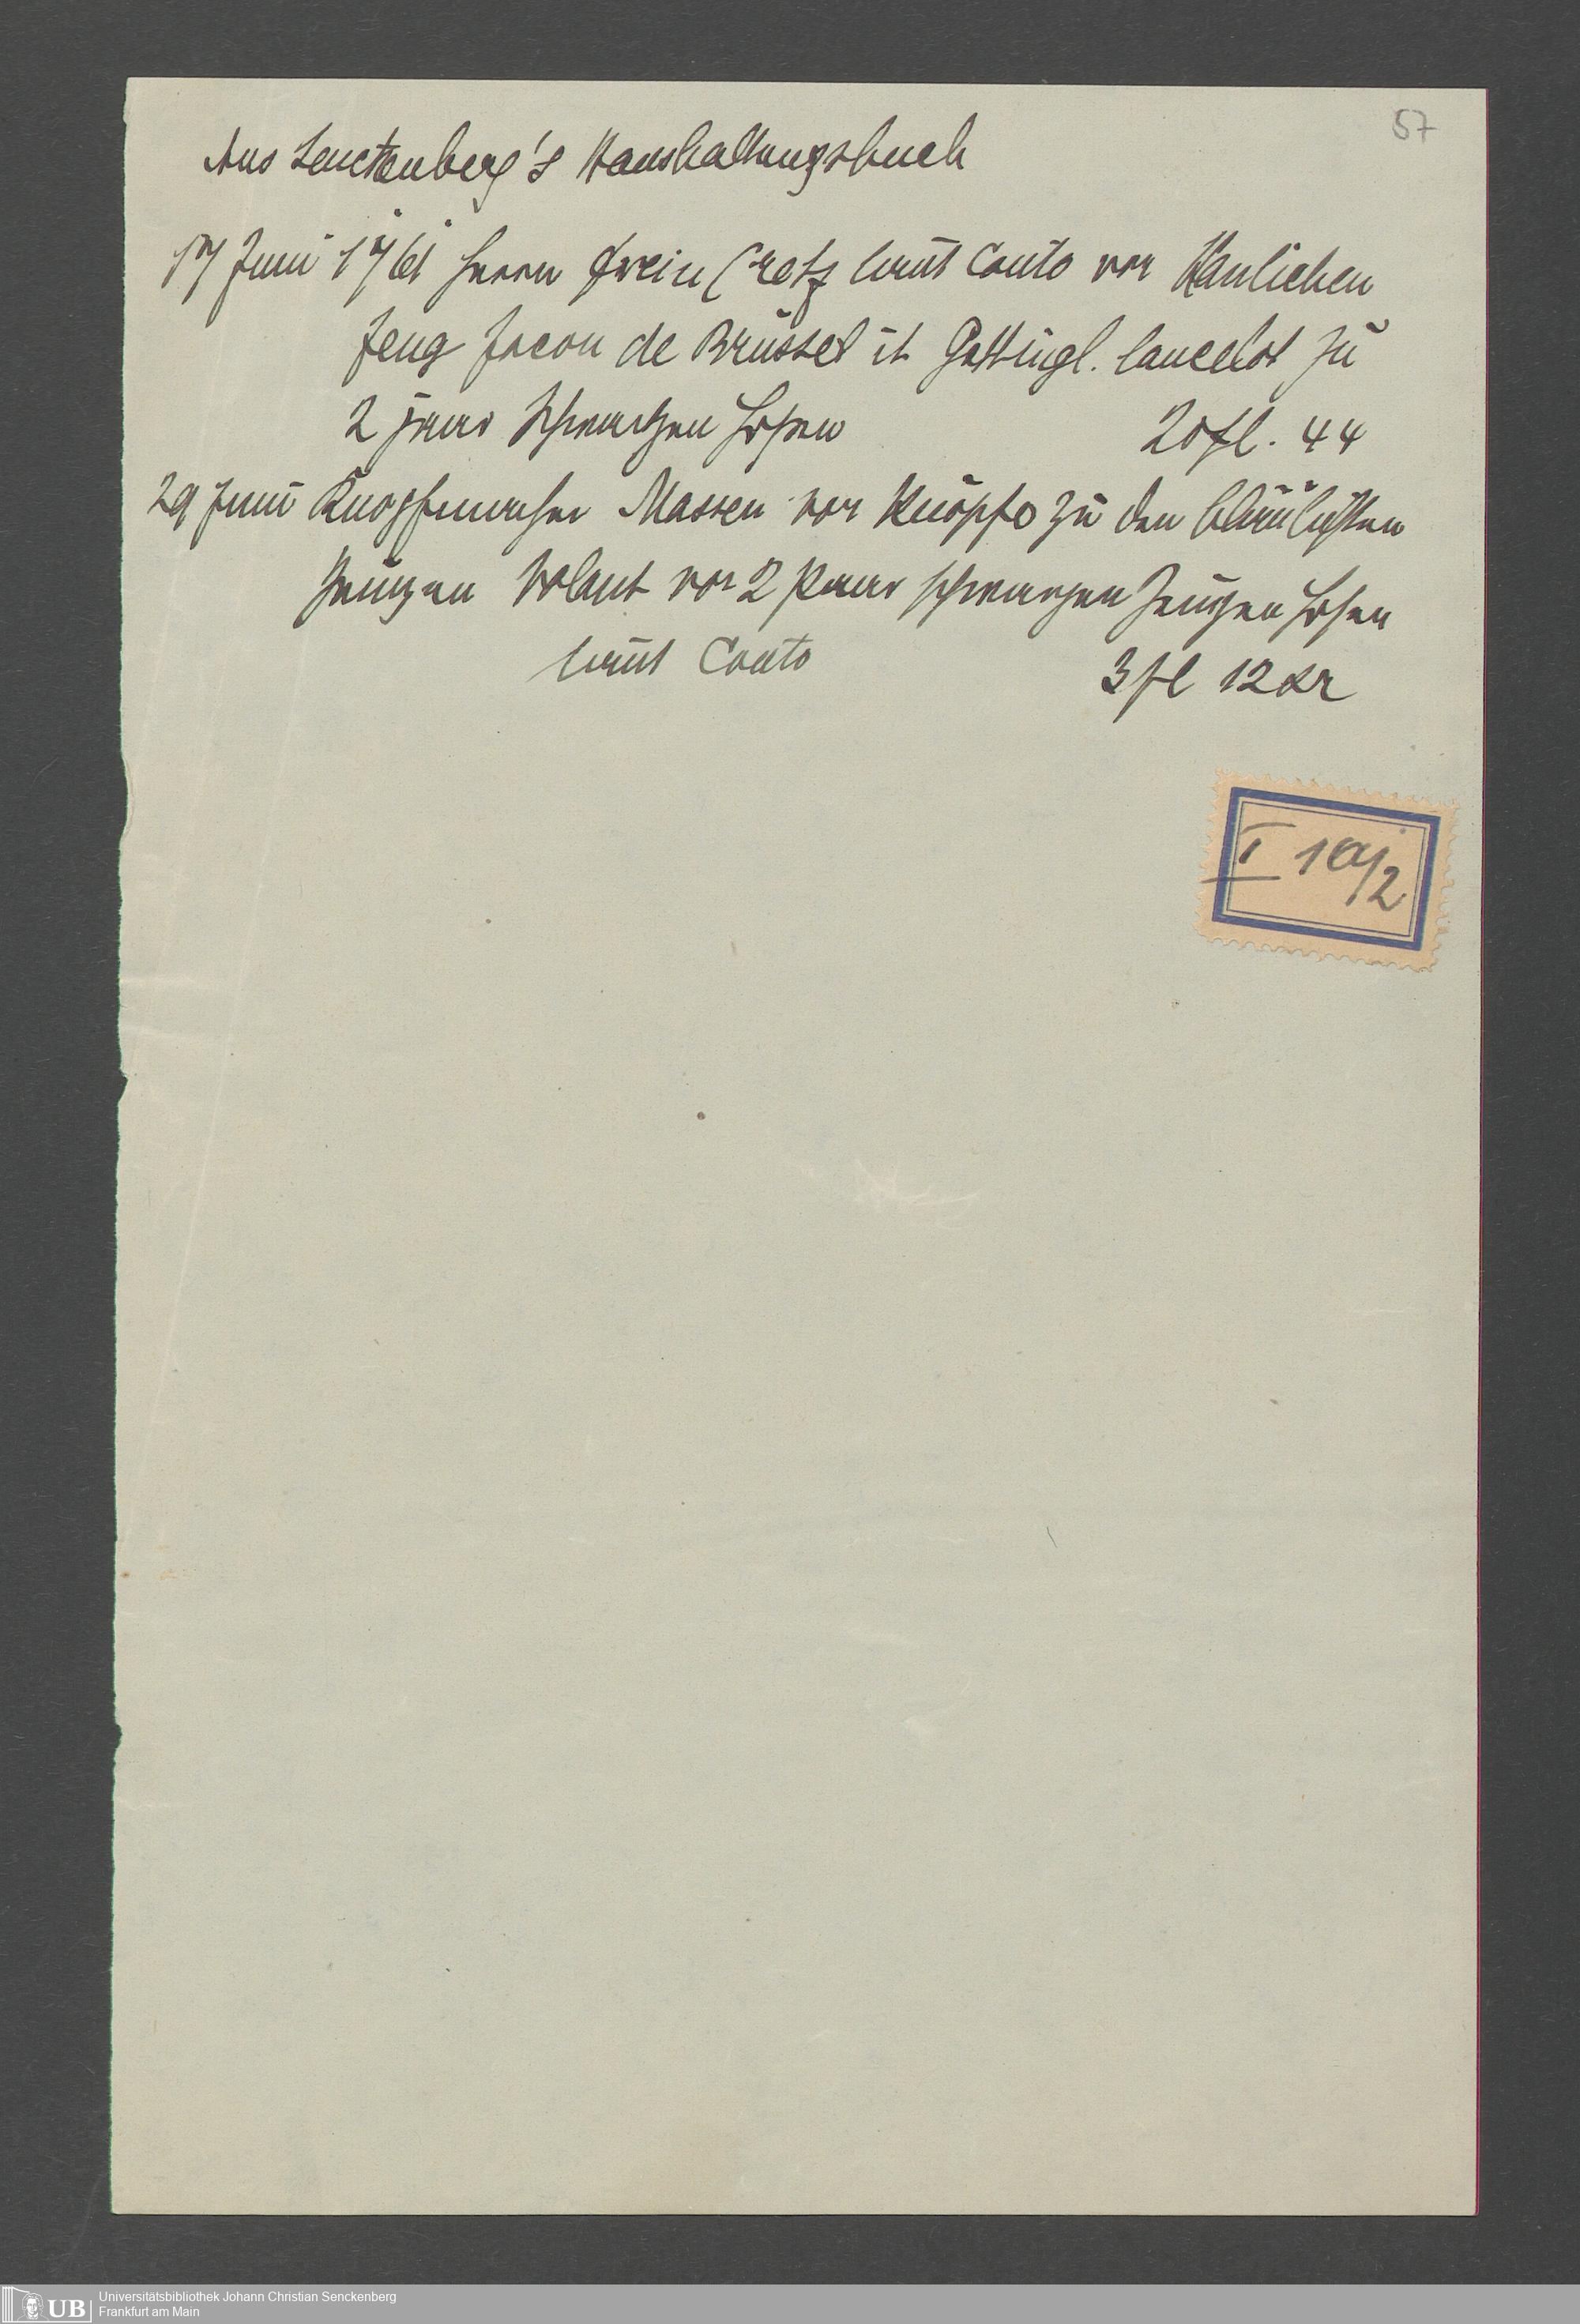 57
Aus Senckenberg's Haushaltungsbuch
17 Juni 1761 Herrn Cretz laut Conto vor
Zeug facon de Brüssel it Götting. lancelot zu
2 paar schwartzen Hosen 20 fl. 44
29 Juni Knopfmacher Massen vor Knöpfe zu den bläulichten
zeugen Volant vor 2 Paar schwarzen zeugen Hosen
laut Conto 3 fl 12 xr
I 10/2
UB
Universitätsbibliothek Johann Christian Senckenberg
Frankfurt am Main